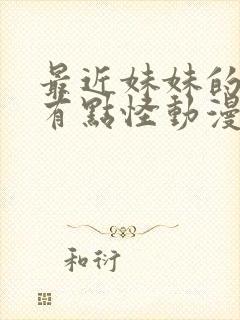 最近妹妹的
有點怪動漫
和衍